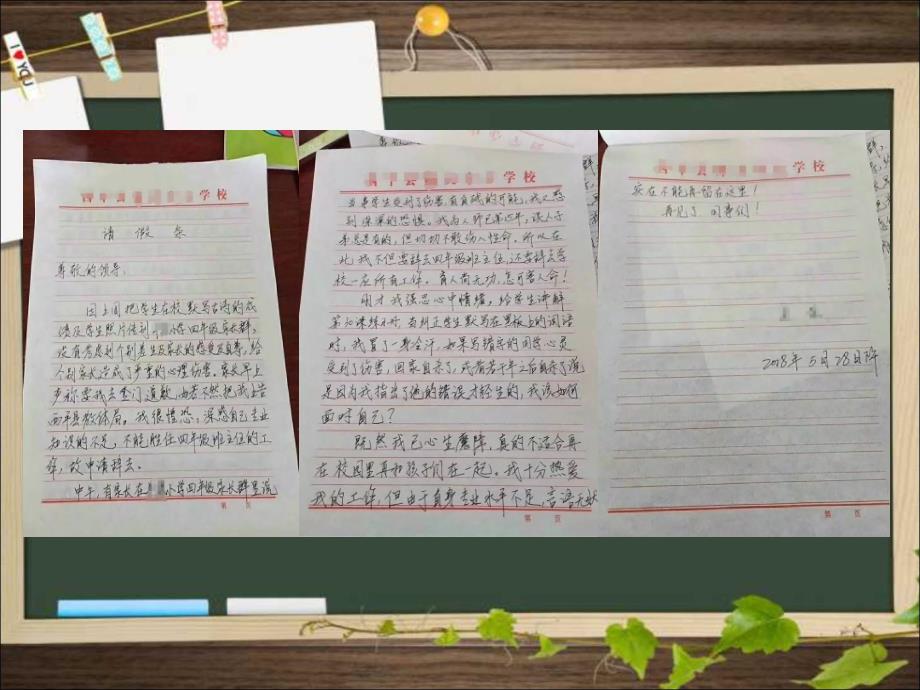 I
YOU
学校
请 假 条
尊敬的领导：
因上周把学生在校默写古诗的成
绩及学生照片传到 小学四年级家长群，
没有考虑到个别差生及家长的感受及自尊，给
个别家长造成了严重的心理伤害。家长早上
声称要我去登门道歉，如若不然把我上告
西平县教体局。我很惶恐，深感自己专业
知识的不足，不能胜任四年级班主任的工
作，故申请辞去。
中午，有家长在 小学四年级家长群里说
第 页
学校
如果学生受到了伤害，有自
到深深的恐惧。我为人师已第 年，误人子
弟总是有的，但切切不敢伤人性命。所以在
此，我不但要辞去四年级班主任，还要辞去学
校一应所有工作。育人尚无功，怎可害人命！
刚才我强忍心中情绪，给学生讲解
第 课练习册，当纠正学生默写在黑板上的词语
时，我冒了一身冷汗，如果写错字的同学心灵
受到了伤害，回家自杀了，或者若干年之后自杀了，说
是因为我指出了他的错误才轻生的，我该如何
面对自己？
既然我已心生魔障，真的不适合再
在校园里再和孩子们在一起。我十分热爱
我的工作，但由于自身专业水平不足，言语无状
第 页
学校
实在不能再留在这里！
再见了，同事们！
2018年5月28日
第 页